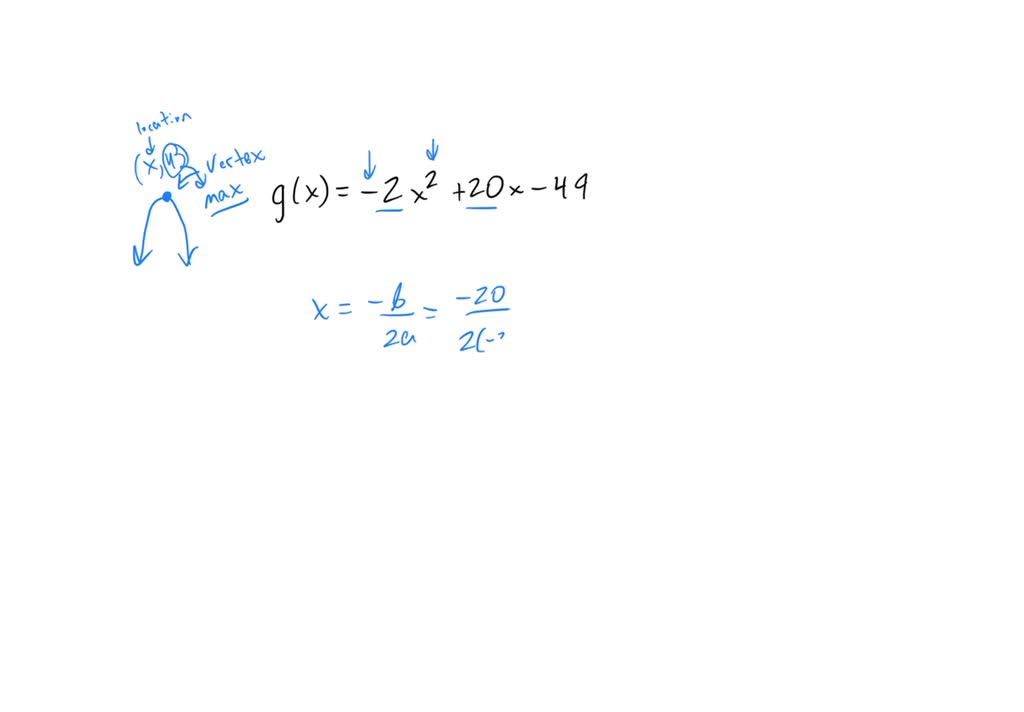 location
(x, y) vertex
max
g(x) = -2x² +20x - 49
x = -b/2a = -20/2(-